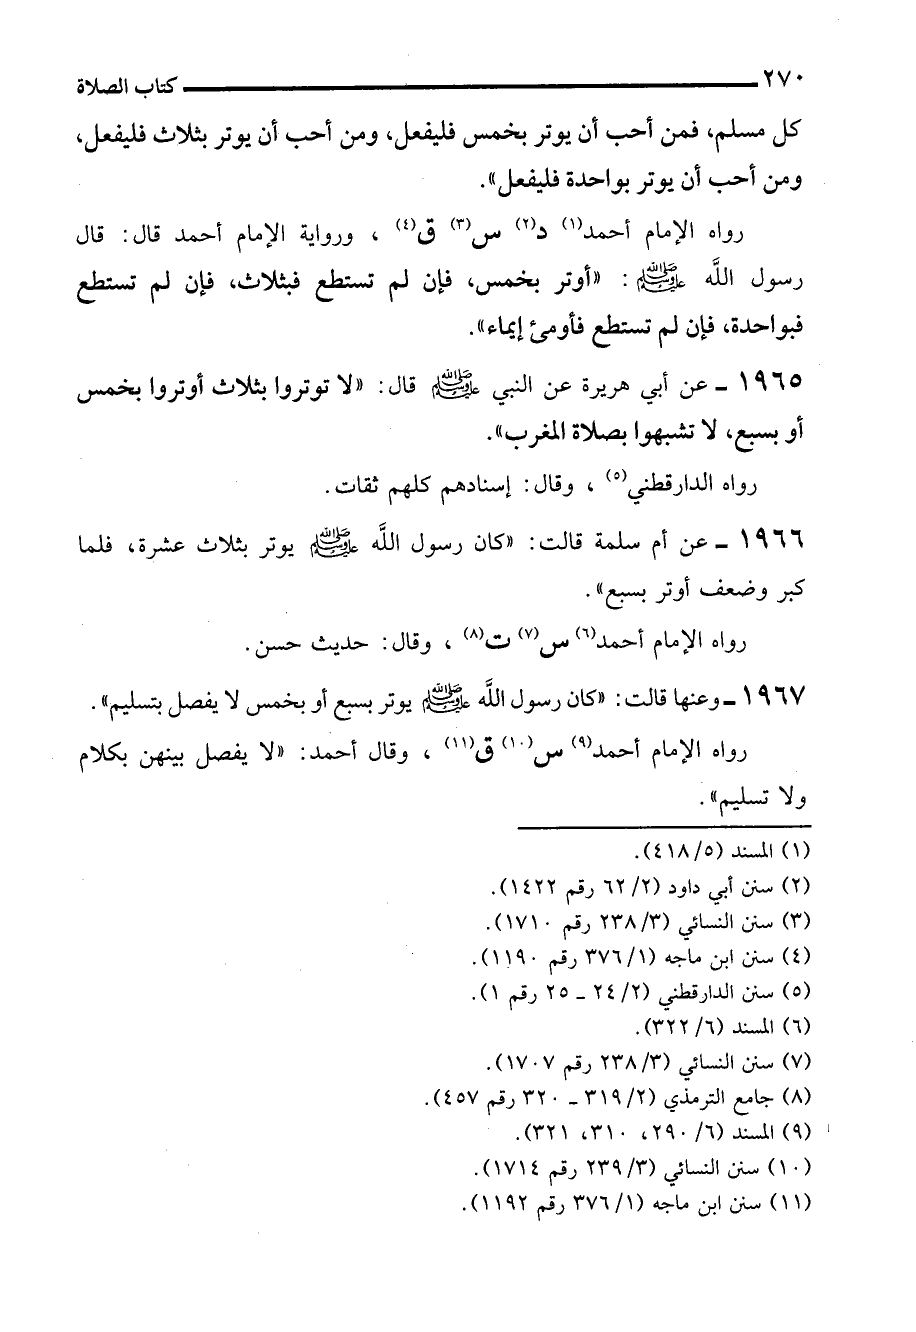 ٢٧٠ كتاب الصلاة
كل مسلم، فمن أحب أن يوتر بخمس فليفعل، ومن أحب أن يوتر بثلاث فليفعل،
ومن أحب أن يوتر بواحدة فليفعل».
رواه الإمام أحمد(١) د(٢) س(٣) ق(٤) ، ورواية الإمام أحمد قال: قال
رسول اللَّه ﷺ: «أوتر بخمس، فإن لم تستطع فبثلاث، فإن لم تستطع
فبواحدة، فإن لم تستطع فأومئ إيماء».
١٩٦٥ ـ عن أبي هريرة عن النبي ﷺ قال: «لا توتروا بثلاث أوتروا بخمس
أو بسبع، لا تشبهوا بصلاة المغرب».
رواه الدارقطني(٥) ، وقال: إسنادهم كلهم ثقات.
١٩٦٦ ـ عن أم سلمة قالت: «كان رسول اللَّه ﷺ يوتر بثلاث عشرة، فلما
كبر وضعف أوتر بسبع».
رواه الإمام أحمد(٦) س(٧) ت(٨) ، وقال: حديث حسن.
١٩٦٧ ـ وعنها قالت: «كان رسول اللَّه ﷺ يوتر بسبع أو بخمس لا يفصل بتسليم».
رواه الإمام أحمد(٩) س(١٠) ق(١١) ، وقال أحمد: «لا يفصل بينهن بكلام
ولا تسليم».
(١) المسند (٤١٨/٥).
(٢) سنن أبي داود (٦٢/٢ رقم ١٤٢٢).
(٣) سنن النسائي (٢٣٨/٣ رقم ١٧١٠).
(٤) سنن ابن ماجه (٣٧٦/١ رقم ١١٩٠).
(٥) سنن الدارقطني (٢٤/٢ ـ ٢٥ رقم ١).
(٦) المسند (٣٢٢/٦).
(٧) سنن النسائي (٢٣٨/٣ رقم ١٧٠٧).
(٨) جامع الترمذي (٣١٩/٢ ـ ٣٢٠ رقم ٤٥٧).
(٩) المسند (٢٩٠/٦، ٣١٠، ٣٢١).
(١٠) سنن النسائي (٢٣٩/٣ رقم ١٧١٤).
(١١) سنن ابن ماجه (٣٧٦/١ رقم ١١٩٢).